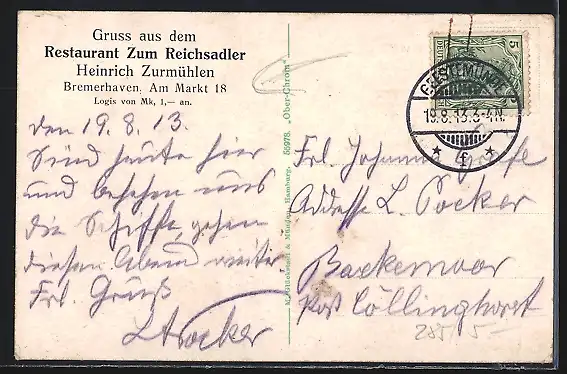 Gruss aus dem
Restaurant Zum Reichsadler
Heinrich Zurmühlen
Bremerhaven, Am Markt 18
Logis von Mk, 1,— an.
den 19.8.13.
Sind heute hier
und besehen uns
die Schiffe gehen
diesen Abend weiter
Frl. Gruß
M. Glückstadt & Münden, Hamburg. 55978. „Ober-Chrom"
5
GEESTEMÜNDE
19.8.13.3-4N.
* c *
Frl. Johanne
Addesse L. Pocker
Backemoor
Post Collinghorst